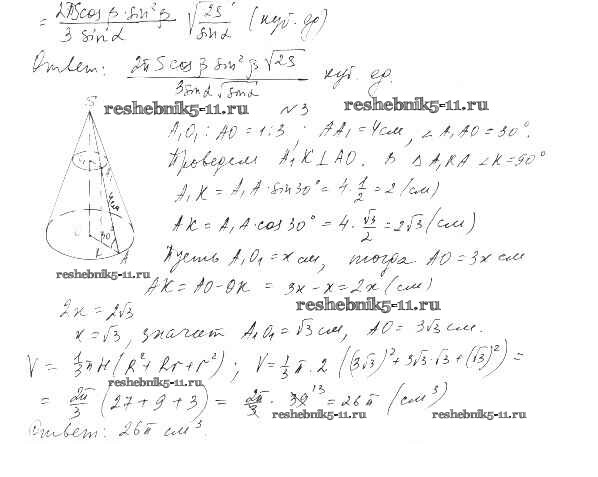 = 2πS cos β · sin² β / 3 sin α √(2S / sin α) (куб. ед)
Ответ: 2πS cos β sin² β √2S / 3 sin α √sin α куб. ед.
reshebnik5-11.ru
№3
reshebnik5-11.ru
A₁O₁ : AO = 1:3; AA₁ = 4см, ∠A₁AO = 30°.
Проведем A₁K ⊥ AO. В △A₁KA ∠K = 90°
A₁K = A₁A · sin 30° = 4 · 1/2 = 2 (см)
AK = A₁A · cos 30° = 4 · √3/2 = 2√3 (см)
S
4см
30°
K A
reshebnik5-11.ru
Пусть A₁O₁ = x см, тогда AO = 3x см
AK = AO - OK = 3x - x = 2x (см)
reshebnik5-11.ru
2x = 2√3
x = √3, значит A₁O₁ = √3 см, AO = 3√3 см.
V = 1/3 πH (R² + Rr + r²); V = 1/3 π · 2 ((3√3)² + 3√3 · √3 + (√3)²) =
reshebnik5-11.ru
= 2π/3 (27 + 9 + 3) = 2π/3 · 39 13 = 26π (см³)
reshebnik5-11.ru reshebnik5-11.ru
Ответ: 26π см³.